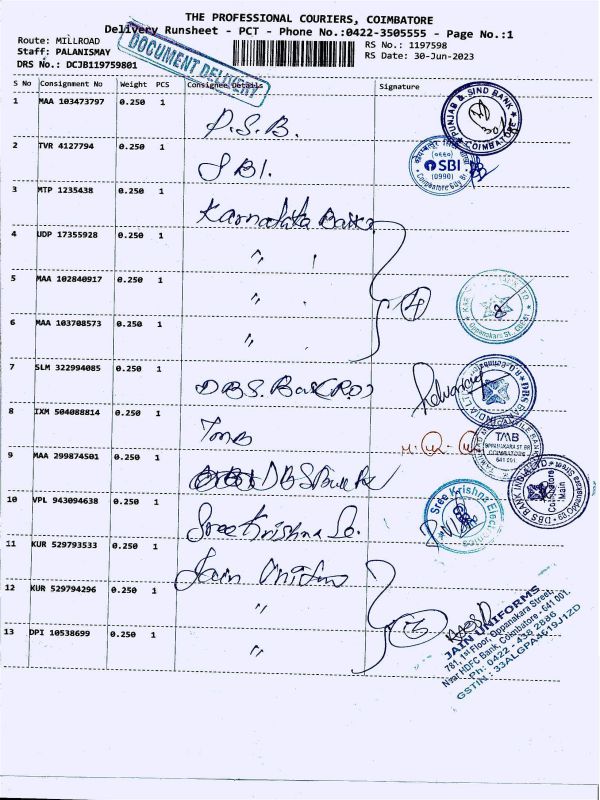 THE PROFESSIONAL COURIERS, COIMBATORE
Delivery Runsheet - PCT - Phone No.:0422-3505555 - Page No.:1
Route: MILLROAD
RS No.: 1197598
Staff: PALANISMAY
RS Date: 30-Jun-2023
DRS No.: DCJB119759801
DOCUMENT DELIVERY
S No Consignment No Weight PCS Consignee Details Signature
1 MAA 103473797 0.250 1 P.S.B.
PUNJAB & SIND BANK COIMBATORE
2 TVR 4127794 0.250 1 SBI.
SBI
(0990)
3 MTP 1235438 0.250 1 Karnataka Bank
4 UDP 17355928 0.250 1 〃
5 MAA 102840917 0.250 1 〃
4
6 MAA 103708573 0.250 1 〃
7 SLM 322994085 0.250 1 DBS. Bank (RO)
8 IXM 504088814 0.250 1 TMB
TMB
OPPANAKARA ST. BR
COIMBATORE
641 001.
9 MAA 299874501 0.250 1 DBS Bank
DBS BANK INDIA LTD
Coimbatore Main
10 VPL 943094638 0.250 1 Sree Krishna
Sree Krishna
11 KUR 529793533 0.250 1 Jain Uniforms
12 KUR 529794296 0.250 1 〃
13 DPI 10538699 0.250 1 〃
JAIN UNIFORMS
781, 1st Floor, Oppanakara Street,
Near HDFC Bank, Coimbatore - 641 001.
Ph: 0422 - 438 2886
GSTIN : 33ALGPA4619J1ZD